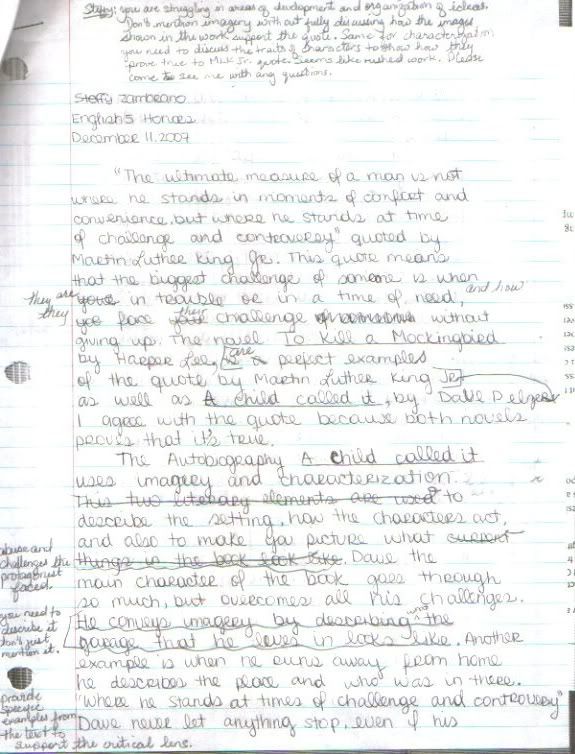 Steffy: you are struggling in areas of development and organization of ideas.
Don't mention imagery without fully discussing how the images
shown in the work support the quote. Same for characterization
you need to discuss the traits of characters to show how they
prove true to MLK Jr. quote. Seems like rushed work. Please
come to see me with any questions.
Steffy Zambrano
English 5 Honors
December 11, 2007
"The ultimate measure of a man is not
where he stands in moments of comfort and
convenience, but where he stands at time
of challenge and controversy" quoted by
Martin Luther King Jr. This quote means
that the biggest challenge of someone is when
they are in trouble or in a time of need, and how
they face their challenge without
giving up. The novel To Kill a Mockingbird
by Harper Lee, are perfect examples
of the quote by Martin Luther King Jr.
as well as A child called it, by Dave Pelzer
I agree with the quote because both novels
proves that it's true.
The Autobiography A child called it
uses imagery and characterization.
This two literary elements are used to
describe the setting, how the characters act,
and also to make you picture what
things in the book look like. Dave the
main character of the book goes through
so much, but overcomes all his challenges.
He conveys imagery by describing the
garage that he lives in looks like. Another
example is when he runs away from home
he describes the place and who was in there.
"Where he stands at times of challenge and controversy"
Dave never let anything stop, even if his
abuse and
challenges the
protagonist
faced.
you need to
describe it
don't just
mention it.
provide
specific
examples from
the text to
support the critical lens.